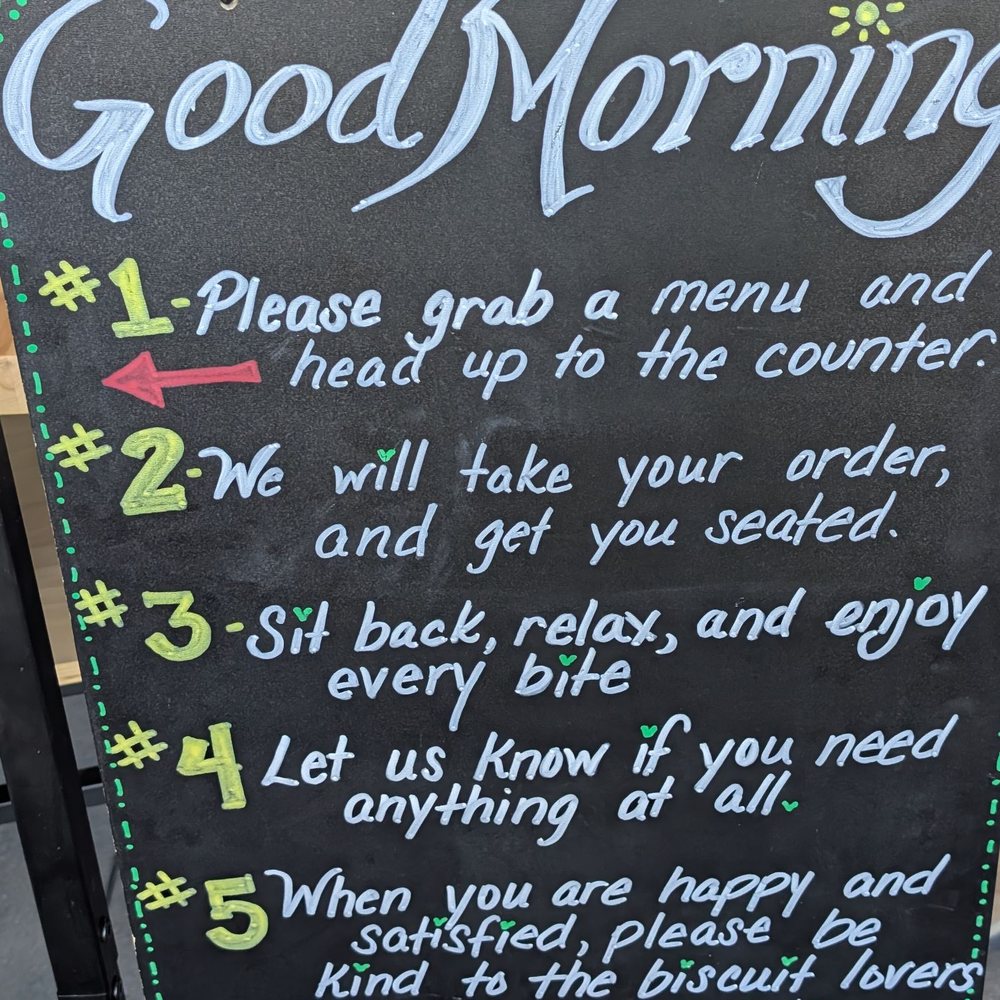 Good Morning
#1- Please grab a menu and
head up to the counter.
#2- We will take your order,
and get you seated.
#3- Sit back, relax, and enjoy
every bite
#4 Let us know if you need
anything at all.
#5 When you are happy and
satisfied, please be
kind to the biscuit lovers